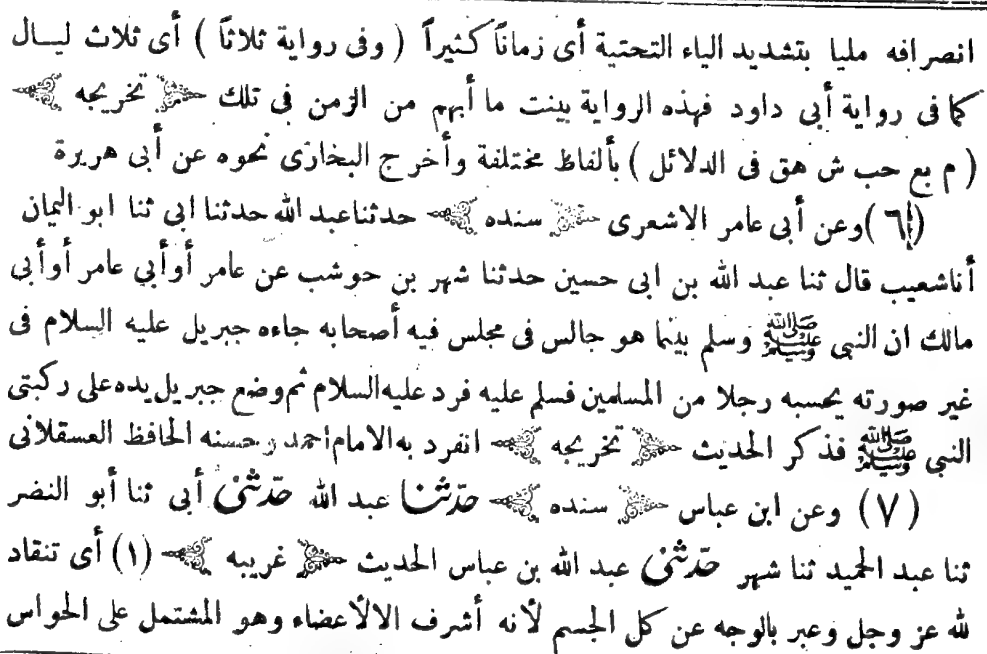 انصرافه مليا بتشديد الياء التحتية أى زماناً كثيراً ( وفى رواية ثلاثاً ) أى ثلاث ليـال
كما فى رواية أبى داود فهذه الرواية بينت ما أبهم من الزمن فى تلك تخريجه
( م بع حب ش هق فى الدلائل ) بألفاظ مختلفة وأخرج البخارى نحوه عن أبى هريرة
(٦) وعن أبى عامر الاشعرى سنده حدثنا عبد الله حدثنا ابى ثنا ابو اليمان
أنا شعيب قال ثنا عبد الله بن ابى حسين حدثنا شهر بن حوشب عن عامر أوأبي عامر أوأبى
مالك ان النبى ﷺ وسلم بينما هو جالس فى مجلس فيه أصحابه جاءه جبريل عليه السلام فى
غير صورته يحسبه رجلا من المسلمين فسلم عليه فرد عليه السلام ثم وضع جبريل يده على ركبتى
النبى ﷺ فذكر الحديث تخريجه انفرد به الامام احمد وحسنه الحافظ العسقلانى
(٧) وعن ابن عباس سنده حدّثنا عبد الله حدّثنى أبى ثنا أبو النضر
ثنا عبد الحميد ثنا شهر حدّثنى عبد الله بن عباس الحديث غريبه (١) أى تنقاد
لله عز وجل وعبر بالوجه عن كل الجسم لأنه أشرف الالأعضاء وهو المشتمل على الحواس